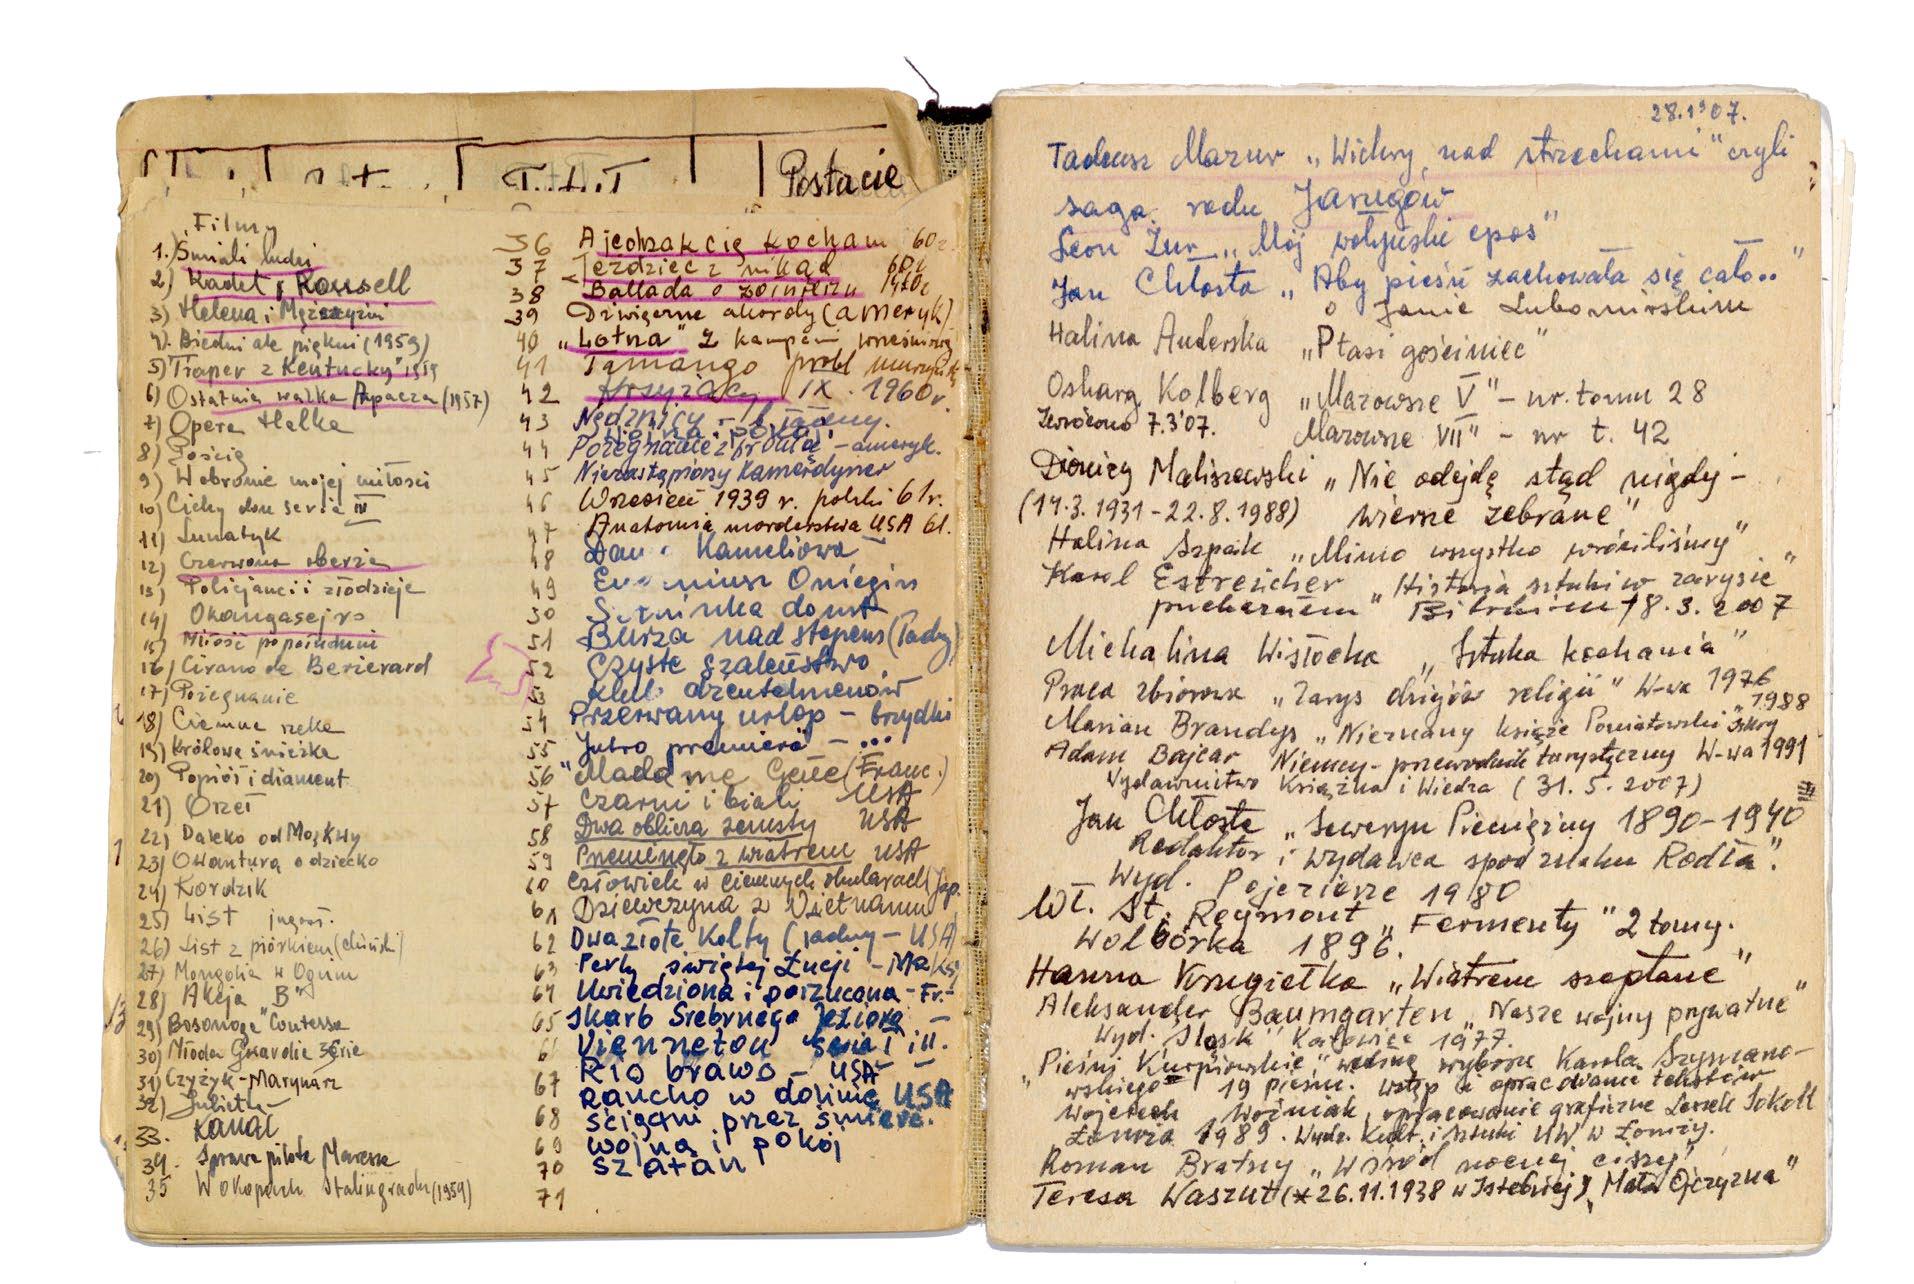 Postacie
Filmy
1.) Śmiali ludzi
2) Kadet Roussell
3) Helena i Mężczyźni
4) Biedni ale piękni (1959)
5) "Traper z Kentucky" 1959
6) Ostatnia walka Apacza (1957)
7) Opera Halka
8) Pościg
9) W obronie mojej miłości
10) Cichy don seria IV
11) Lunatyk
12) Czerwona oberża
13) Policjanci i złodzieje
14) Okangasejro
15) Miłość po południu
16) Cirano de Berierard
17) Pożegnanie
18) Ciemna rzeka
19) Królowa śnieżka
20) Popiół i diament
21) Orzeł
22) Daleko od Moskwy
23) Awantura o dziecko
24) Kordzik
25) List jugosł.
26) List z piórkiem (chiński)
27) Mongolia w Ogniu
28) Akcja "B"
29) Bosonoga "Contessa
30) Młoda Gwardia 3 serie
31) Czyżyk-Marynarz
32) Julietta
33. Kanał
34. Sprawa pilota Maresza
35 W okopach Stalingradu (1959)
36 A jednak cię kocham 60r.
37 Jeździec z nikąd 60r
38 Ballada o żołnierzu 1960r
39 Dźwięczne akordy (ameryk)
40 „Lotna" z kampanii wrześniowej
41 Tamango probl murzyński
42 Krzyżacy IX. 1960r.
43 Nędznicy
44 Pożegnanie z bronią - ameryk.
45 Niezastąpiony Kamerdyner
46 Wrzesień 1939 r. polski 61r.
47 Anatomia morderstwa USA 61.
48 Dama Kameliowa
49 Eugeniusz Oniegin
50
51 Burza nad stepem (Rady)
52 Czyste szaleństwo
53 Klub dżentelmenów
54 Przerwany urlop - brzydki
55 Jutro premiera - ...
56 "Madame (Franc.)
57 Czarni i biali USA
58 Dwa oblicza zemsty USA
59 Przeminęło z wiatrem USA
60 Człowiek w ciemnych okularach Jap.
61 Dziewczyna z Vietnamu
62 Dwa złote Kolty (ładny - USA)
63 Perły świętej Łucji - Meks)
64 Uwiedziona i porzucona - Fr.-
65 Skarb Srebrnego Jeziora -
66 Viennetou seria I i II.
67 Rio brawo - USA
Rancho w dolinie USA
68 ścigani przez śmierć.
69 wojna i pokój
70 szatan
71
28.1'07.
Tadeusz Mazur „Wichry nad strzechami" czyli
saga rodu Jarugów
Leon Żur „Mój wołyński epos"
Jan Chłosta „Aby pieśń zachowała się cało.."
o Janie Lubomirskim
Halina Auderska „Ptasi gościniec"
Oskarg Kolberg „Mazowsze V" - nr. tomu 28
Zwrócono 7.3'07. Mazowsze VII" - nr t. 42
Dionizy Maliszewski „Nie odejdę stąd nigdy -
(14.3.1931 - 22.8.1988) wiersze zebrane"
Halina Szpak „Mimo wszystko wróciliśmy"
Karol Estreicher „Historia sztuki w zarysie"
18.3.2007
Michalina Wisłocka „Sztuka kochania"
Praca zbiorowa „Zarys dziejów religii" W-wa 1976
1988
Marian Brandys „Nieznany książe Poniatowski" Iskry
Adam Bajcar Niemcy - przewodnik turystyczny W-wa 1991
Wydawnictwo Książka i Wiedza (31.5.2007)
Jan Chłosta „Seweryn Pieniężny 1890-1940
Redaktor i wydawca spod znaku Rodła".
Wyd. Pojezierze 1980
Wł. St. Reymont „Fermenty" 2 tomy.
Wolbórka 1896.
Hanna Krugiełka „Wiatrem szeptane"
Aleksander Baumgarten „Nasze wojny prywatne"
Wyd. Śląsk" Katowice 1977.
„Pieśni Kurpiowskie" według wyboru Karola Szymano-
wskiego 19 pieśni. Wstęp i opracowanie tekstów
Wojciech Woźniak, opracowanie graficzne Leszek Sokoll
Łomża 1989. Wydz. Kult. i Sztuki UW w Łomży.
Roman Bratny „Wśród nocnej ciszy"
Teresa Waszut (*26.11.1938 w Istebnej) „Mała Ojczyzna"